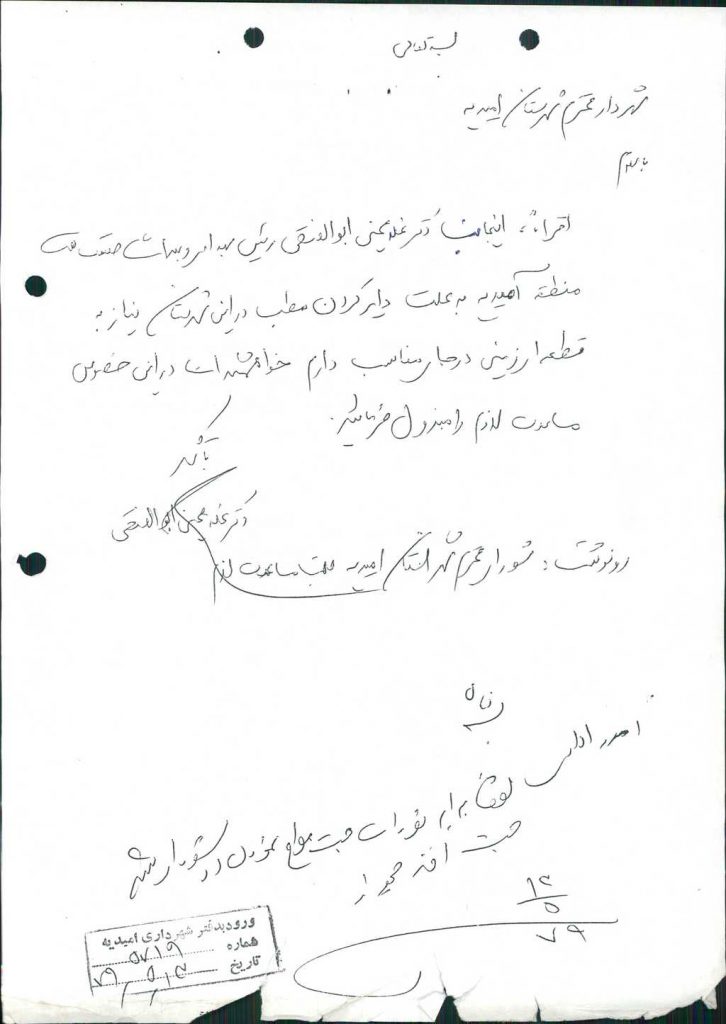 بسمه تعالی
شهردار محترم شهرستان امیدیه
با سلام
احتراماً، اینجانب دکتر ابوالفتحی رئیس بهداری و بهداشت صنعت نفت
منطقه امیدیه به علت دایر کردن مطب در این شهرستان نیاز به
قطعه ارزمینی در جای مناسب دارم خواهشمند است در این خصوص
مساعدت لازم را مبذول فرمائید.
با تشکر
دکتر ابوالفتحی
رونوشت: شورای محترم شهرستان امیدیه جهت مساعدت لازم
امور اداری
لطفاً برابر مقررات جهت مطرح نمودن در شورای شهر
جهت
۱۲
۵
۷۹
ورود بدفتر شهرداری امیدیه
شماره ۵۷۱۹
تاریخ ۷۹/۵/۱۳